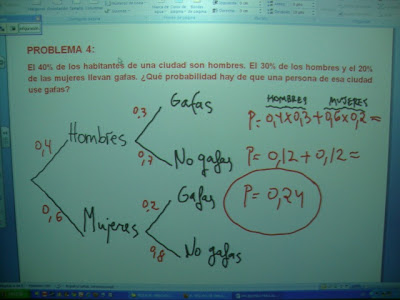 PROBLEMA 4:
El 40% de los habitantes de una ciudad son hombres. El 30% de los hombres y el 20%
de las mujeres llevan gafas. ¿Qué probabilidad hay de que una persona de esa ciudad
use gafas?
HOMBRES MUJERES
P= 0,4x0,3+0,6x0,2=
P= 0,12+0,12=
P= 0,24
0,4 Hombres
0,3 Gafas
0,7 No gafas
0,6 Mujeres
0,2 Gafas
0,8 No gafas